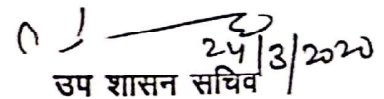 24/3/2020
उप शासन सचिव